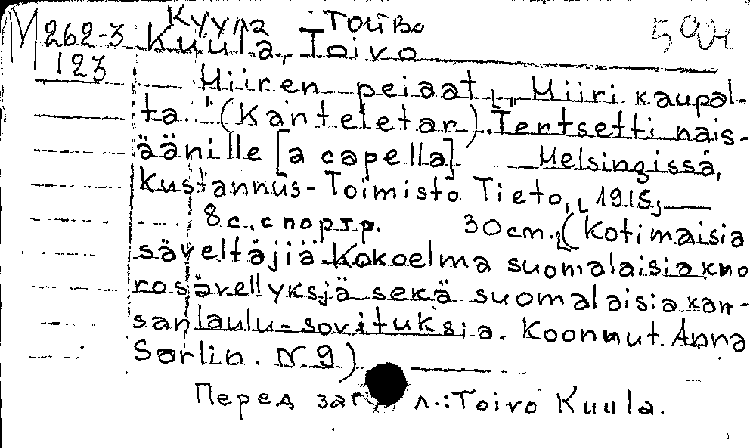 Куула Тойво
M 262-3 Kuula, Toivo
123
Hiiren peiaat, „Hiiri kaupal-
ta.." (Kanteletar). Tertsetti nais-
äänille [a capella]. Helsingissä,
Kustannus-Toimisto Tieto, [, 1915,
8 с., с портр. 30 cm., (Kotimaisia
säveltäjiä. Kokoelma suomalaisia kuo
rosävellyksjä sekä suomalaisia kan-
sanlaulu-sovituksia. Koonnut. Anna
Sarlin. N 9)
Перед заг л.: Toivo Kuula.